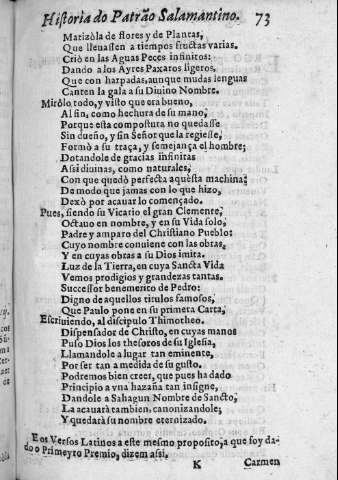 Historia do Patrão Salamantino. 73
Matizòla de flores y de Plantas,
Que lleuassen a tiempos fructas varias.
Criò en las Aguas Peces infinitos:
Dando a los Ayres Paxaros ligeros,
Que con harpadas, aunque mudas lenguas
Canten la gala a su Diuino Nombre.
Miròlo todo, y visto que era bueno,
Al fin, como hechura de su mano,
Porque esta compostura no quedasse
Sin dueño, y sin Señor que la regiesse,
Formò a su traça, y semejança el hombre;
Dotandole de gracias infinitas
Assi diuinas, como naturales,
Con que quedò perfecta aquesta machina:
De modo que jamas con lo que hizo,
Dexò por acauar lo començado.
Pues, siendo su Vicario el gran Clemente,
Octauo en nombre, y en su Vida solo,
Padre y amparo del Christiano Pueblo:
Cuyo nombre conuiene con las obras,
Y en cuyas obras a su Dios imita.
Luz de la Tierra, en cuya Sancta Vida
Vemos prodigios y grandezas tantas.
Successor benemerito de Pedro:
Digno de aquellos titulos famosos,
Que Paulo pone en su primera Carta,
Escriuiendo, al discipulo Thimotheo.
Dispensador de Christo, en cuyas manos
Puso Dios los thesoros de su Iglesia,
Llamandole a lugar tan eminente,
Por ser tan a medida de su gusto.
Podremos bien creer, que pues ha dado
Principio a vna hazaña tan insigne,
Dandole a Sahagun Nombre de Sancto,
La acauarà tambien, canonizandole,
Y quedarà su nombre eternizado.
Eos Versos Latinos a este mesmo proposito, a que foy da-
do o Primeyro Premio, dizem assi.
K Carmen